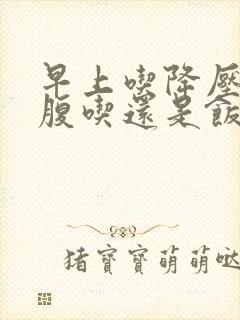 早上喫降壓
腹喫還是飯
猪寶寶萌萌噠